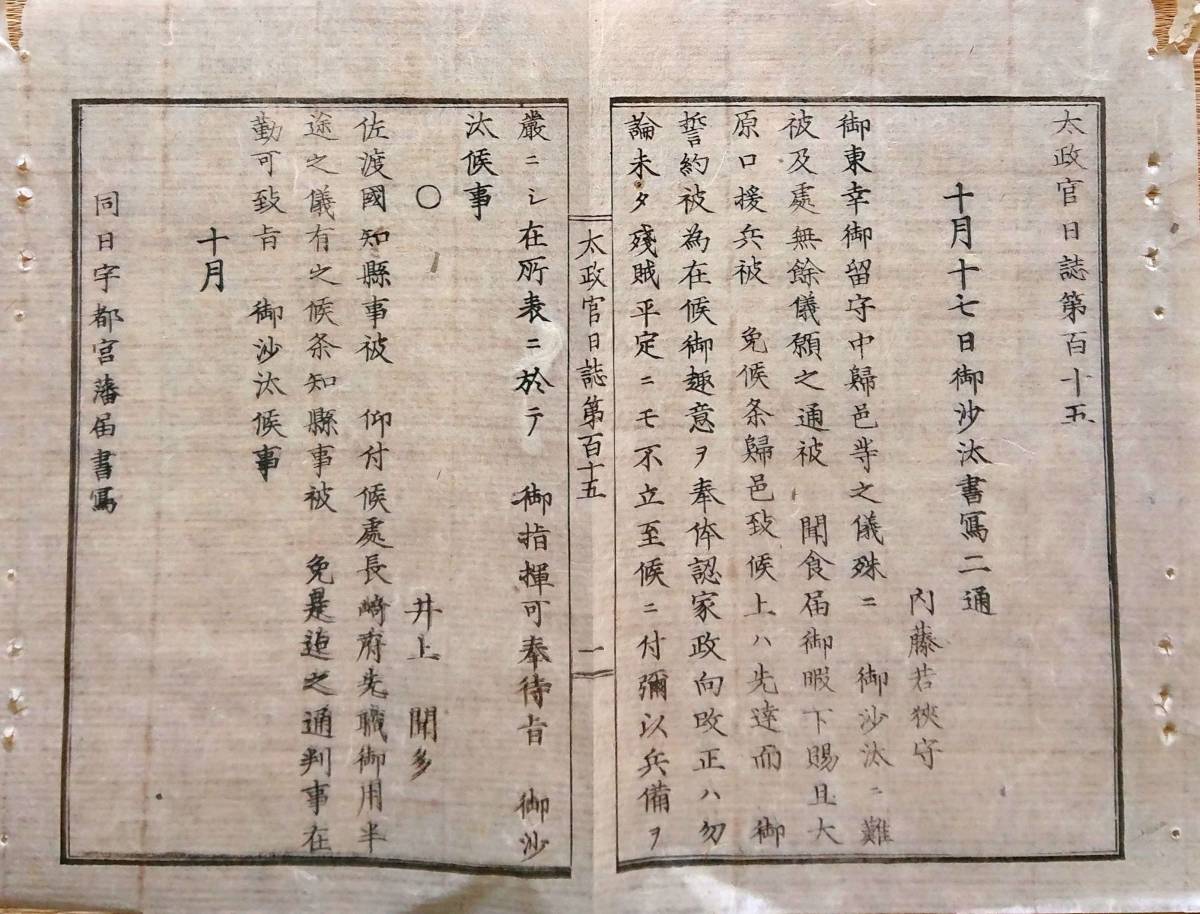 太政官日誌第百十五
十月十七日御沙汰書寫二通
內藤若狹守
御東幸御留守中歸邑等之儀殊ニ　御沙汰ニ難
被及處無餘儀願之通被　聞食届御暇下賜且大
原口援兵被　免候条歸邑致候上ハ先達而　御
誓約被為在候御趣意ヲ奉体認家政向改正ハ勿
論未タ殘賊平定ニモ不立至候ニ付彌以兵備ヲ
太政官日誌第百十五　一
嚴ニシ在所表ニ於テ　御指揮可奉待旨　御沙
汰候事
○　井上聞多
佐渡國知縣事被　仰付候處長崎府先職御用半
途之儀有之候条知縣事被　免是迠之通判事在
勤可致旨　御沙汰候事
十月
同日宇都宮藩届書寫